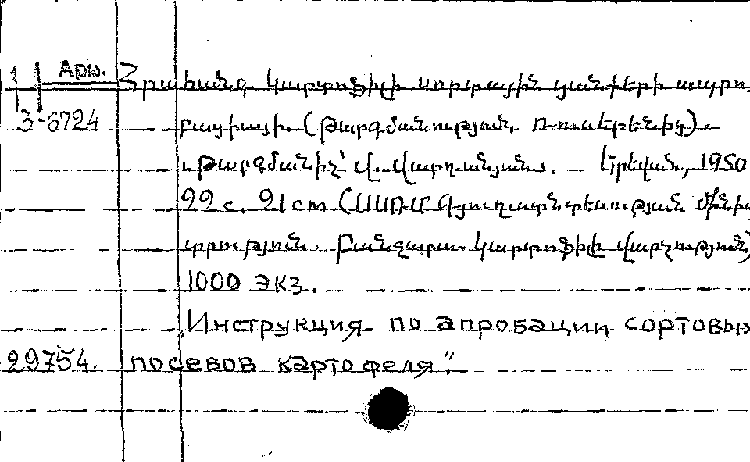 Арм. Հրահանգ կարտոֆիլի սորտային ցանքերի ապրո
3-6724 բացիայի. (Թարգմանություն ռուսերենից).
Թարգմանիչ՝ Վ. Վարդանյան. Երևան, 1950
22 с. 21 cm (ՍՍՌՄ Գյուղատնտեսության մինիս
տրություն. Բանջարա-կարտոֆիլի վարչություն)
1000 экз.
„Инструкция по апробации сортовых
29754. посевов картофеля".